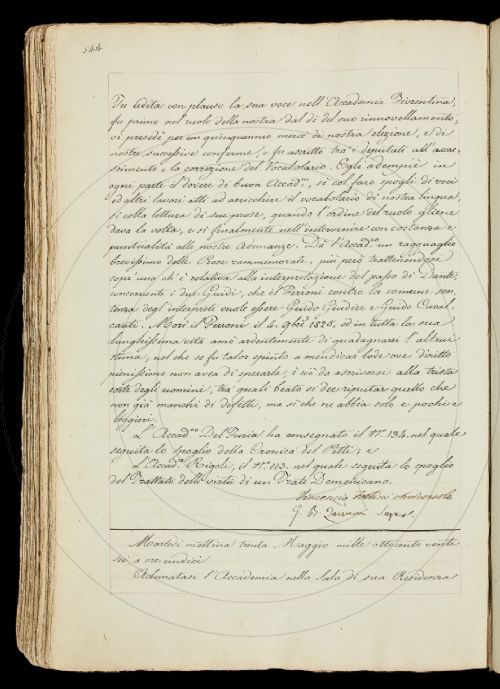 544
Fu udita con plauso la sua voce nell'Accademia Fiorentina,
fu primo nel ruolo della nostra dal dì del suo rinnovellamento,
vi presedè per un quinquennio mercè di nostra elezione, e di
nostre successive conferme, e fu ascritto tra i deputati all'accre-
scimento e la correzione del Vocabolario. Egli adempiè in
ogni parte il dovere di buon Accad.co, sì col fare spogli di voci
ed altri lavori atti ad arricchire il vocabolario di nostra lingua,
sì colla lettura di sue prose, quando l'ordine del ruolo gliene
dava la volta, e sì finalmente nell'intervenire con costanza e
puntualità alle nostre Adunanze. Dà l'Accad.co un ragguaglio
brevissimo delle Prose rammemorate, più però trattenendose
sopra una ch'è relativa alla interpretazione del passo di Dante,
concernente i due Guidi, che il Ferroni contro la comune sen-
tenza degl'interpreti vuole essere Guido Giudice e Guido Caval-
canti. Morì il Ferroni il 4. 9bre 1825, ed in tutta la sua
lunghissima vita amò ardentemente di guadagnarsi l'altrui
stima, nel che se fu talor spinto a mendicar lode ove diritto
pienissimo non avea di sperarla, è ciò da ascriversi alla trista
sorte degli uomini, tra' quali beato si dee riputar quello che
non già manchi di difetti, ma sì che ne abbia solo e pochi e
leggieri.
L'Accad.co Del Furia ha consegnato il N.o 134. nel quale
seguita lo spoglio della Cronica del Pitti; e
L'Accad.co Rigoli, il N.o 113. nel quale seguita lo spoglio
del Trattato delle virtù di un Frate Domenicano.
Vincenzio Follini
G. B. Zannoni Segret.
Martedì mattina trenta Maggio mille ottocento venti
sei, a ore undici
Adunatasi l'Accademia nella Sala di sua Residenza